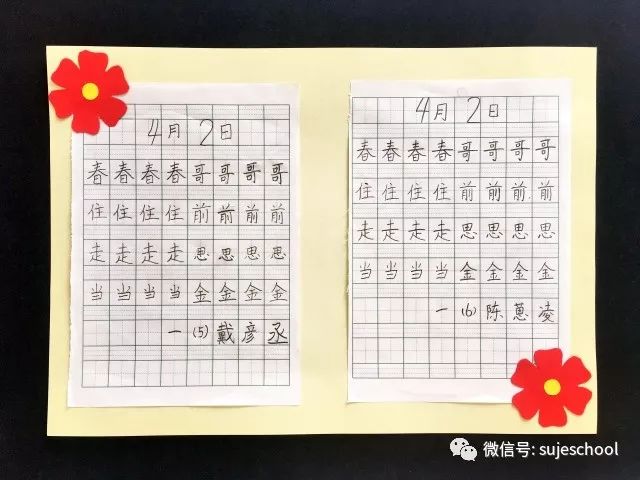 4月2日
春春春春哥哥哥哥
住住住住前前前前
走走走走思思思思
当当当当金金金金
一(5)戴彦丞
4月2日
春春春春哥哥哥哥
住住住住前前前前
走走走走思思思思
当当当当金金金金
一(6)陈蕙凌
微信号: sujeschool